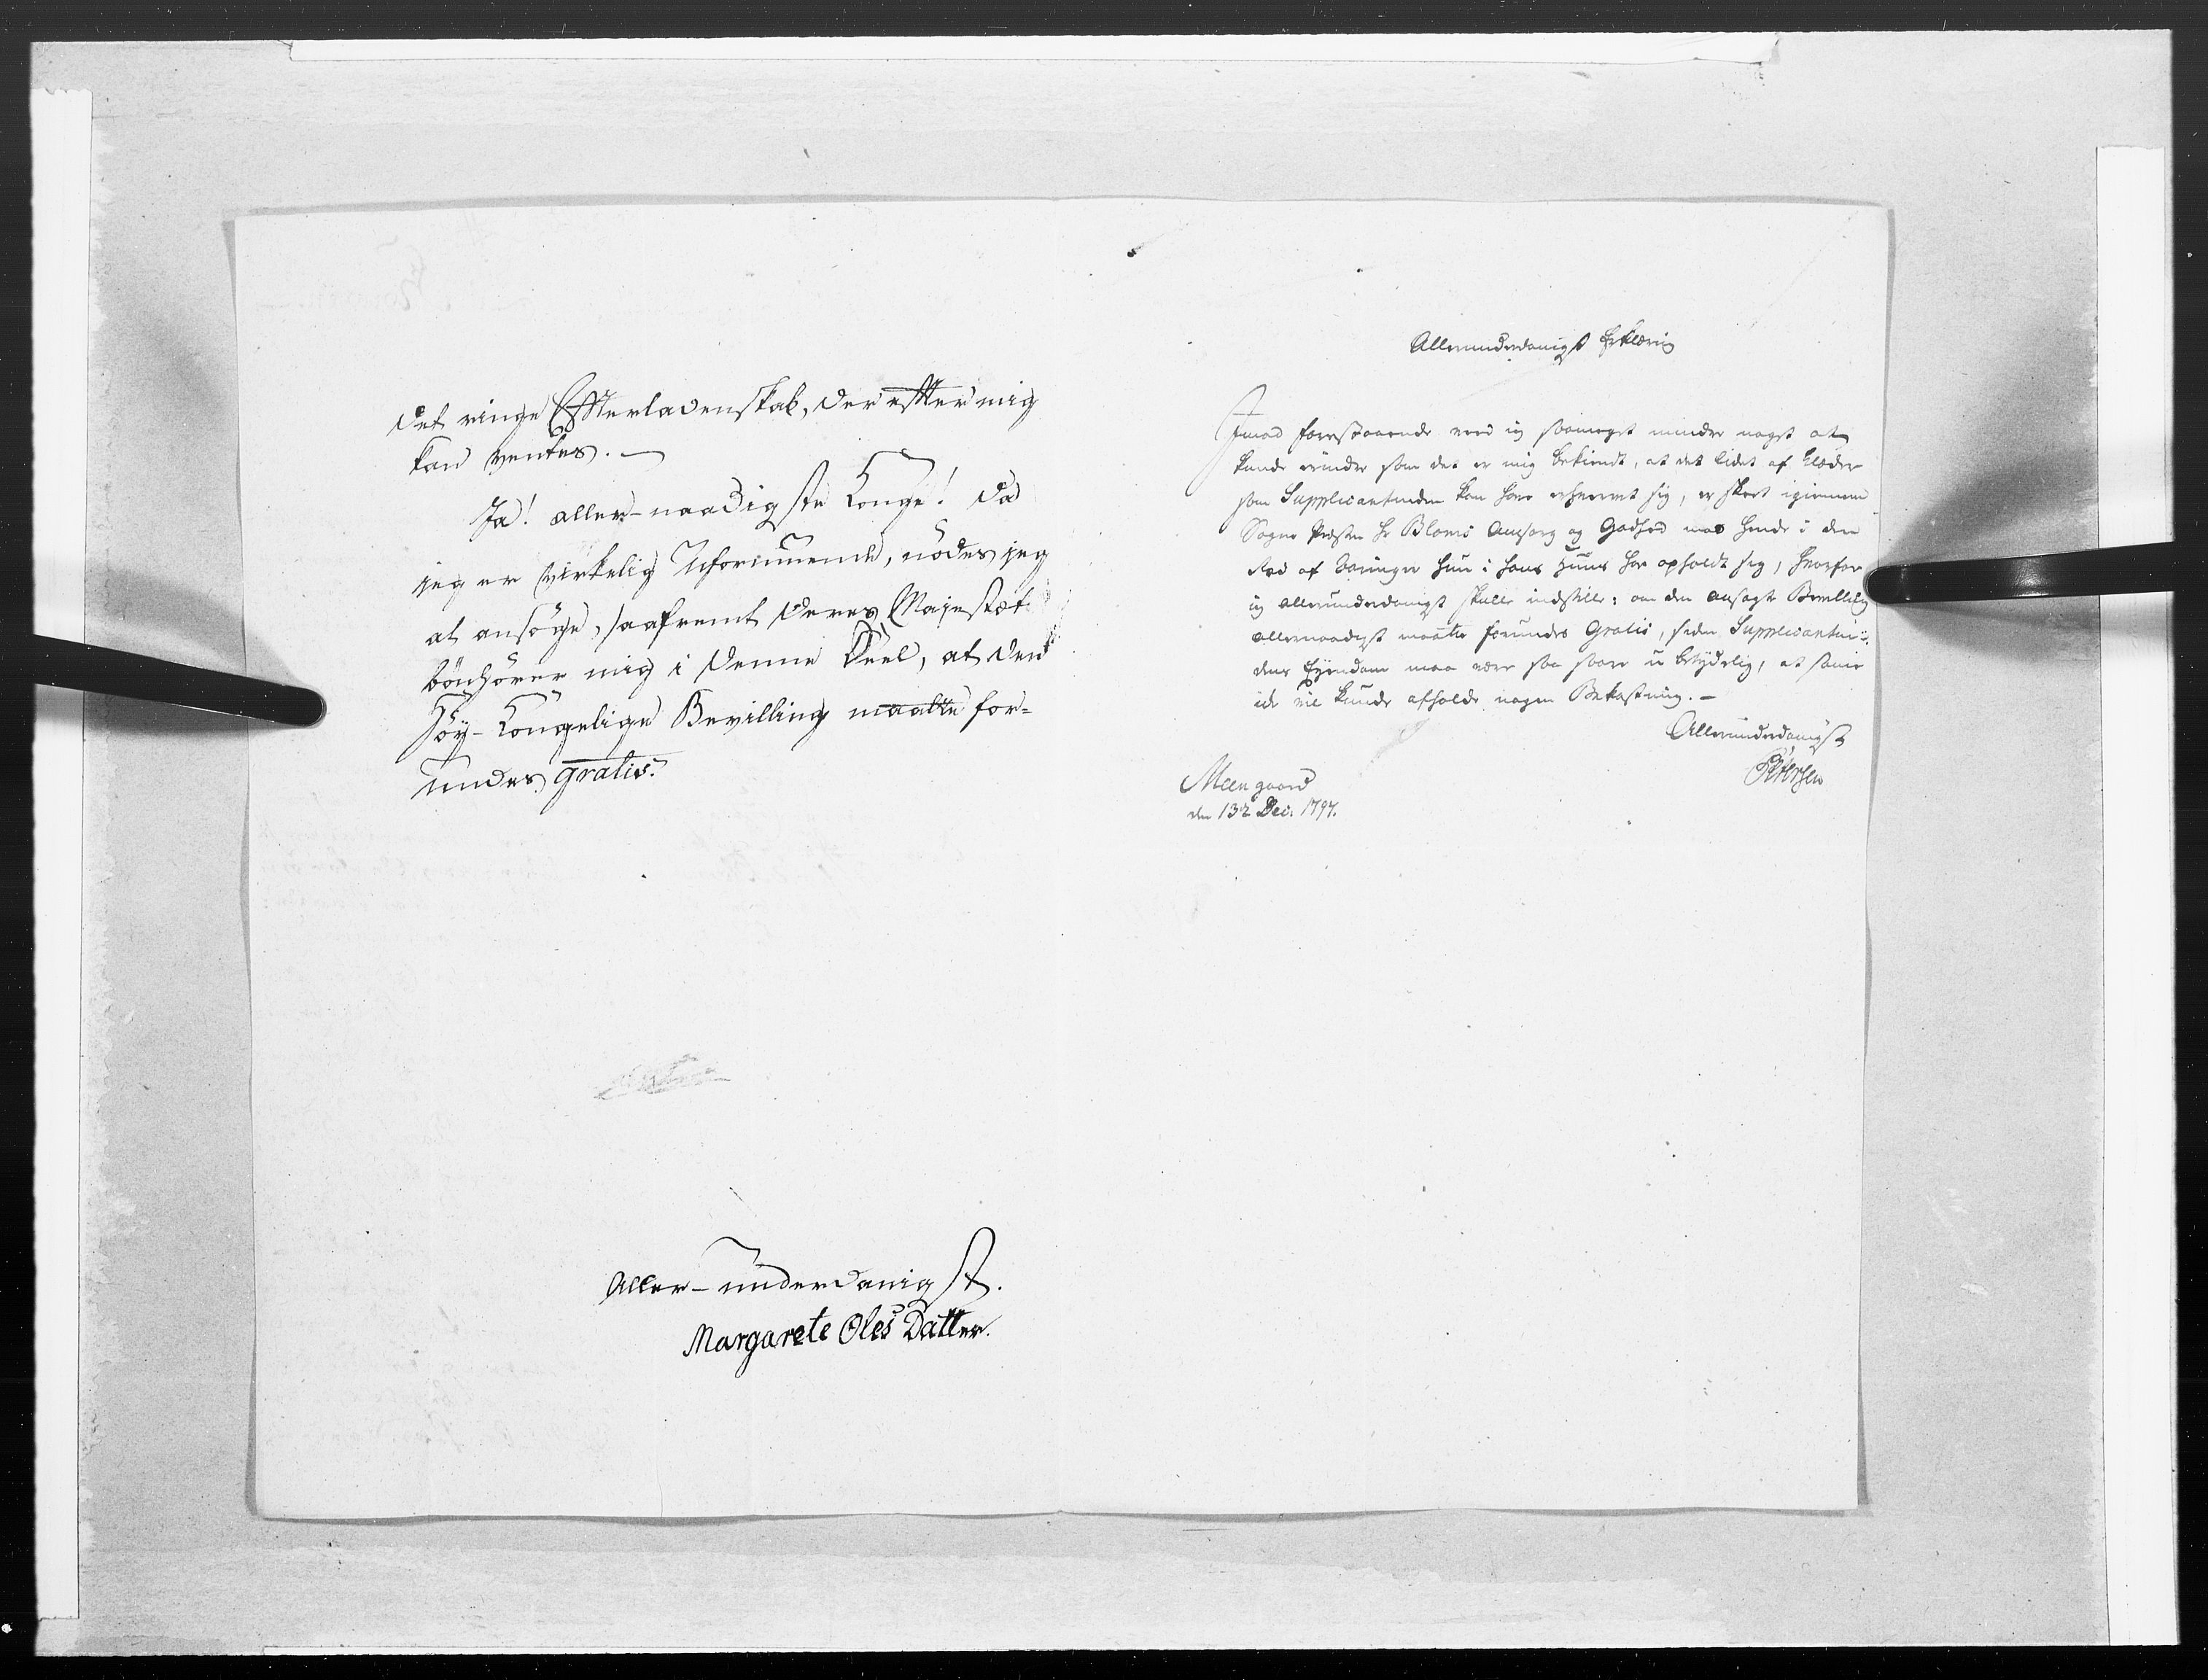 det ringe Effterladenskab, der effter mig
kan ventes. —
Ja! aller-naadigste Konge! da
jeg er virkelig Uformuende, nødes jeg
at ansøge, saafremt Deres Majestæt
bönhører mig i denne Deel, at den
Höy-Kongelige Bevilling maatte for-
undes gratis.
Aller-underdanigst.
Margarete Oles Datter.
Allerunderdanigst Erklæring
Imod forestaaende veed ieg saameget mindre noget at
kunde erindre som det er mig bekiendt, at det lidet af Klæder
som Supplicantinden kan have erhvervet sig, er skeet igiennem
Sogne Præsten Hr Bloms Omsorg og Godhed mod hende i den
Rad af Aaringer hun i hans Huus har opholdt sig, hvorfor
ieg allerunderdanigst skulle indstille: om den ansøgte Bevilling
allernaadigst maatte forundes Gratis, siden Supplicantin-
dens Eyendom maa være saa saare ubetydelig, at samme
ick vil kunde afholde nogen Bekostning. —
Allerunderdanigst
Petersen
Meengaard
den 13de Dec: 1797.